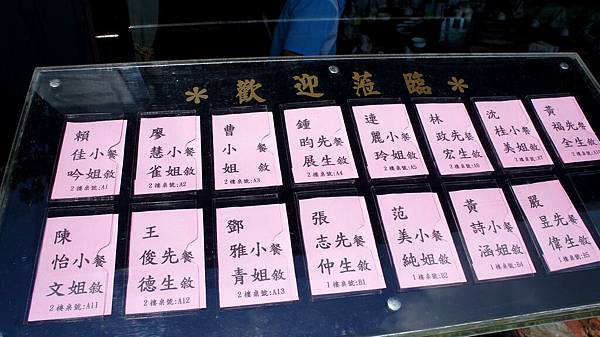 *歡迎蒞臨*
賴佳吟小姐餐敘
2樓桌號:A1
廖慧雀小姐餐敘
2樓桌號:A2
曹小姐餐敘
2樓桌號:A3
鍾昀展先生餐敘
2樓桌號:A4
連麗玲小姐餐敘
2樓桌號:A5
林政宏先生餐敘
2樓桌號:A6
沈桂美小姐餐敘
2樓桌號:A7
黃福全先生餐敘
2樓桌號:
陳怡文小姐餐敘
2樓桌號:A11
王俊德先生餐敘
2樓桌號:A12
鄧雅青小姐餐敘
2樓桌號:A13
張志仲先生餐敘
1樓桌號:B1
范美純小姐餐敘
1樓桌號:B2
黃詩涵小姐餐敘
1樓桌號:B4
嚴昱偉先生餐敘
1樓桌號:B5